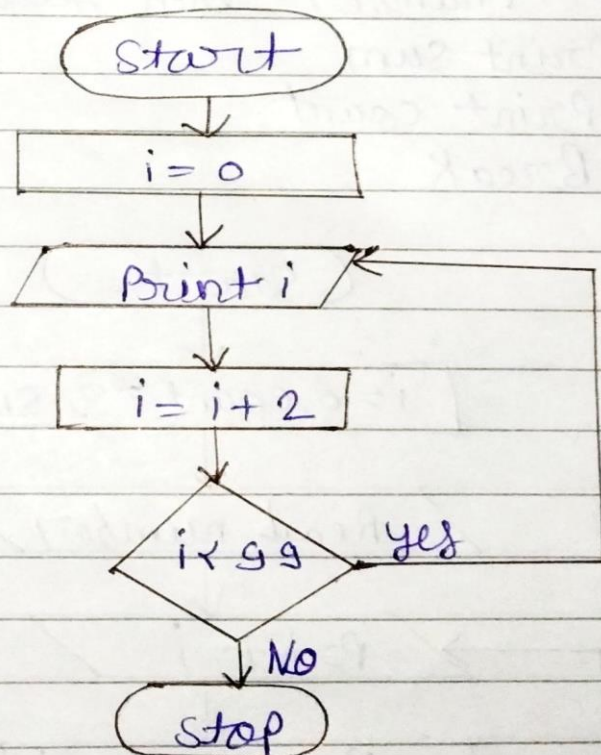 Start
i = 0
Print i
i = i + 2
i < 99
yes
No
Stop